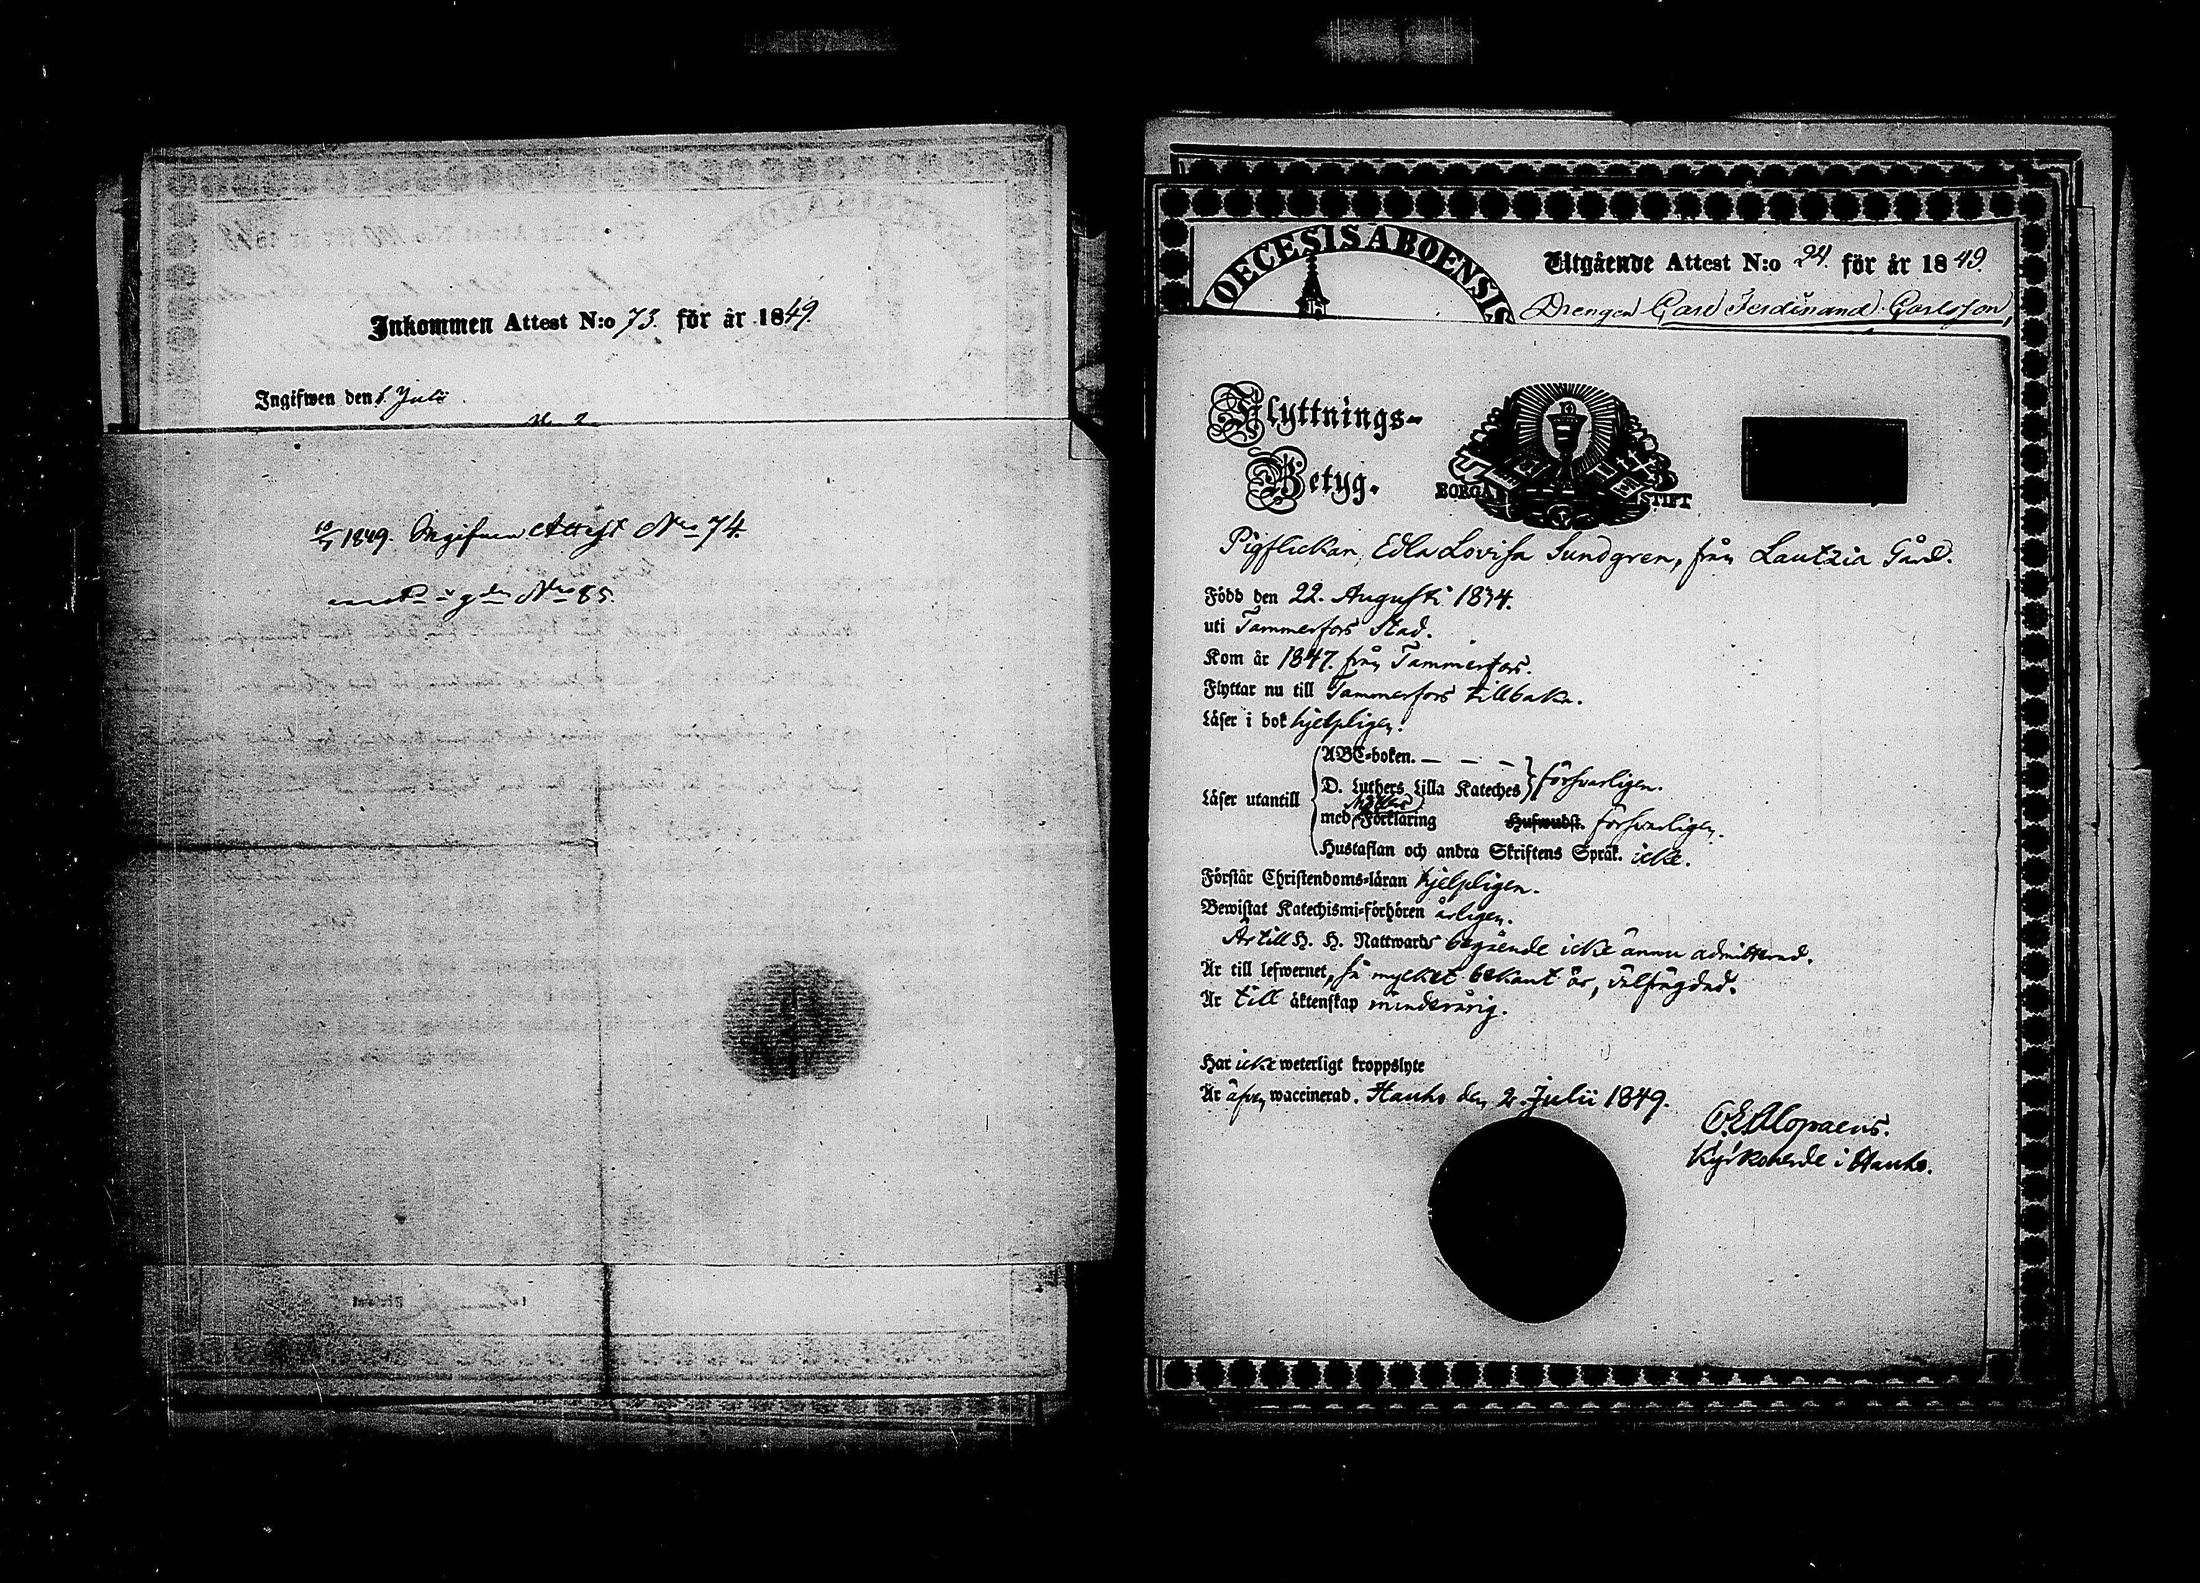 Inkommen Attest N:o 73. för år 1849.
Ingifwen den Juli
10/7 1849. Ingifven Attest No 74.
No 85.
OECESIS ABOENSIS
Utgående Attest N:o 24. för år 1849.
Drengen Carl Ferdinand Carlsson,
Flyttnings-
Betyg.
BORGÅ STIFT
Pigflickan, Edla Lovisa Sundgren, från Lautzia Gård.
Född den 22. Augusti 1834.
uti Tammerfors Stad.
Kom år 1847. från Tammerfors.
Flyttar nu till Tammerfors tillbaka.
Läser i bok hjelpligen.
ABC-boken. — — —
Läser utantill D. Luthers Lilla Kateches försvarligen.
med Förklaring Hufwudst. försvarligen.
Hustaflan och andra Skriftens Språk. icke.
Förstår Christendoms-läran hjelpligen.
Bewistat Katechismi-förhören årligen.
Är till H. H. Nattwards begående icke ännu admitterad.
Är till lefwernet, så mycket bekant är, välfrägdad.
Är till äktenskap minderårig.
Har icke weterligt kroppslyte
Är äfven waccinerad. Hauho den 2. Julii 1849.
Alopaeus.
Kyrkoherde i Hauho.